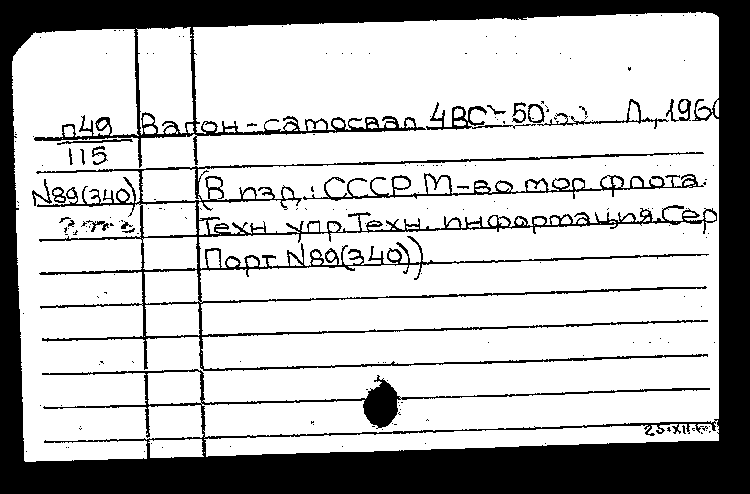 п49 Вагон-самосвал 4ВС-50. Л., 1960
115
N89(340) (В изд.: СССР. М-во мор флота.
Техн. упр. Техн. информация. Сер
Порт N89(340)).